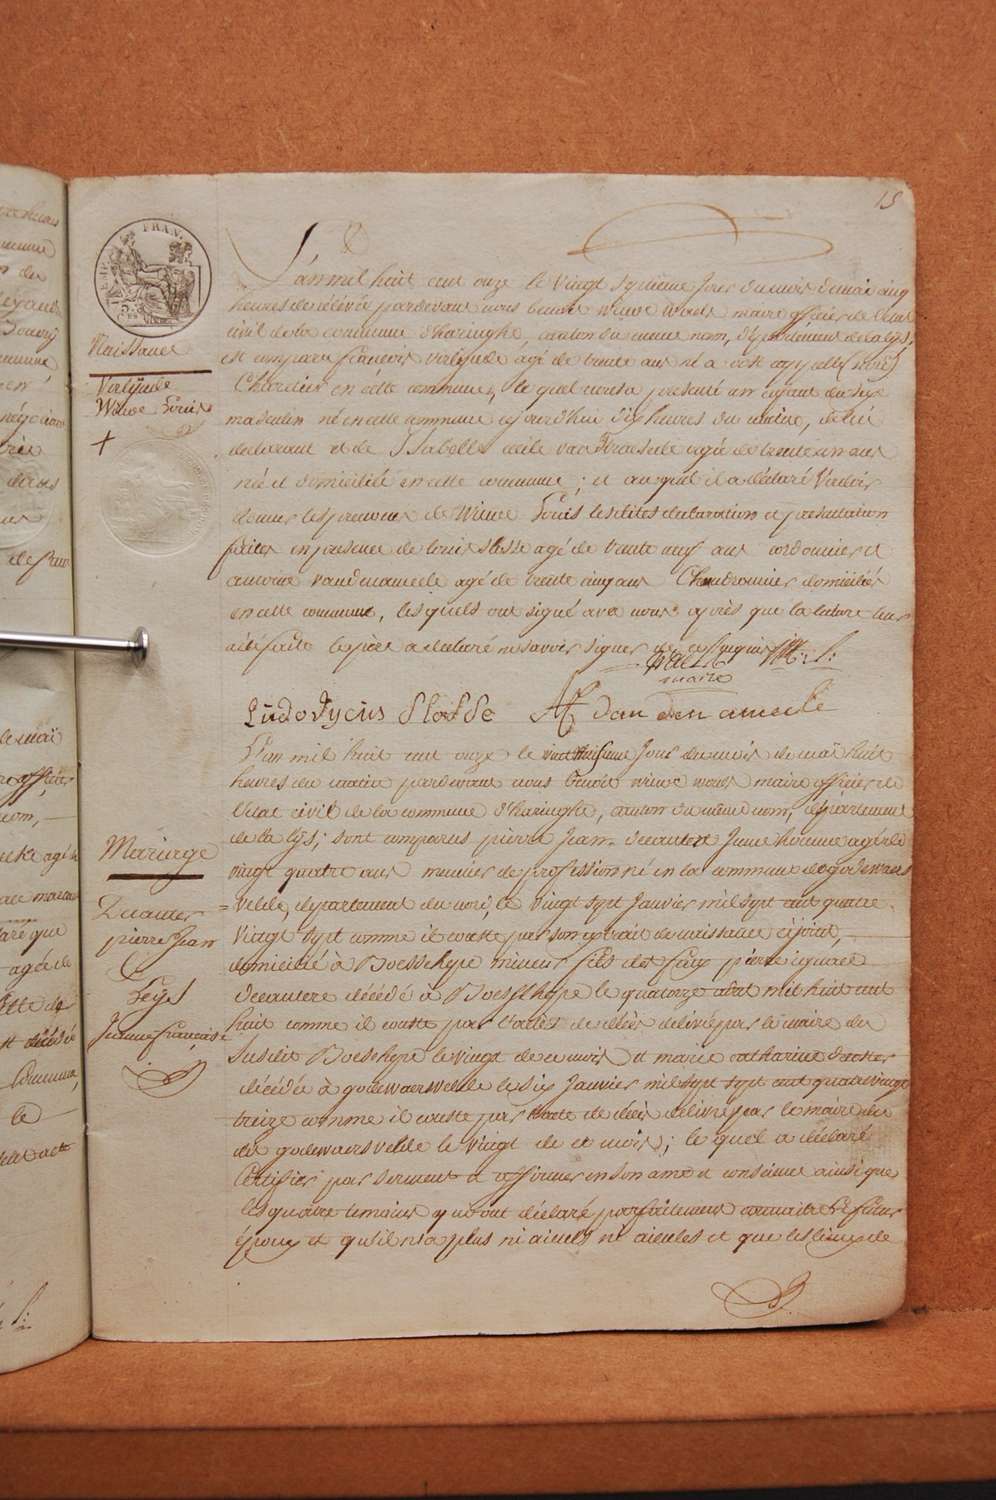 15
EMP. FRAN.
Naissance
Verlÿnde
Winoc Louis
L'an mil huit cent onze le vingt septieme jour du mois de mai cinq
heures de rélévée pardevant nous benoit Winoc Wouts maire officier de l'état
civil de la commune d'haringhe, canton du même nom, département de la lÿs,
est comparu françois verlynde agé de trente ans né à
en cette commune, le quel nous a presenté un enfant du sexe
masculin né en cette commune aujourd'hui dix heures du matin, de lui
declarant et de Isabelle agée de trente un ans
née et domiciliée en cette commune; et auquel il a déclaré vouloir
donner les prenoms de Winoc Louis les dites declaration et presentation
faites en presence de louis slosse agé de trente neuf ans cordonnier et
antoine vandenameele agé de trente cinq ans domiciliés
en cette commune, lesquels ont signé avec nous après que lecture leur
a été faite le père a déclaré ne savoir signer de ce requis
maire
Ludovycus Slosse van den ameele
L'an mil huit cent onze le vingt huitieme jour du mois de mai huit
heures du matin pardevant nous benoit winoc wouts maire officier de
l'état civil de la commune d'haringhe, canton du même nom, département
de la lÿs; sont comparus pierre Jean decautere Jeune homme agé de
vingt quatre ans meunier de profession né en la commune de godewaers
=velde, département du nord, le vingt sept Janvier mil sept cent quatre
Vingt sept comme il conste par son extrait de naissance cijoint,
domicilié à Boeschepe mineur fils de feu pierre ignace
decautere décédé à Boeschepe le quatorze août mil huit cent
huit comme il conste par l'acte de décès delivré par le maire du
susdit Boeschepe le vingt de ce mois et marie catharine
décédée à godewaersvelde le six Janvier mil sept sept cent quatre vingt
treize comme il conste par l'acte de décès délivré par le maire du
dit godewaersvelde le vingt de ce mois; le quel a déclaré
certifier par serment et affirmer en son ame et conscience ainsi que
les quatre temoins qui ont déclaré parfaitement connaitre le futur
époux et qu'il n'a plus ni aieuls ni aieules et que les lieux de
Mariage
Decauter
pierre Jean
&
Leys
Jeanne française